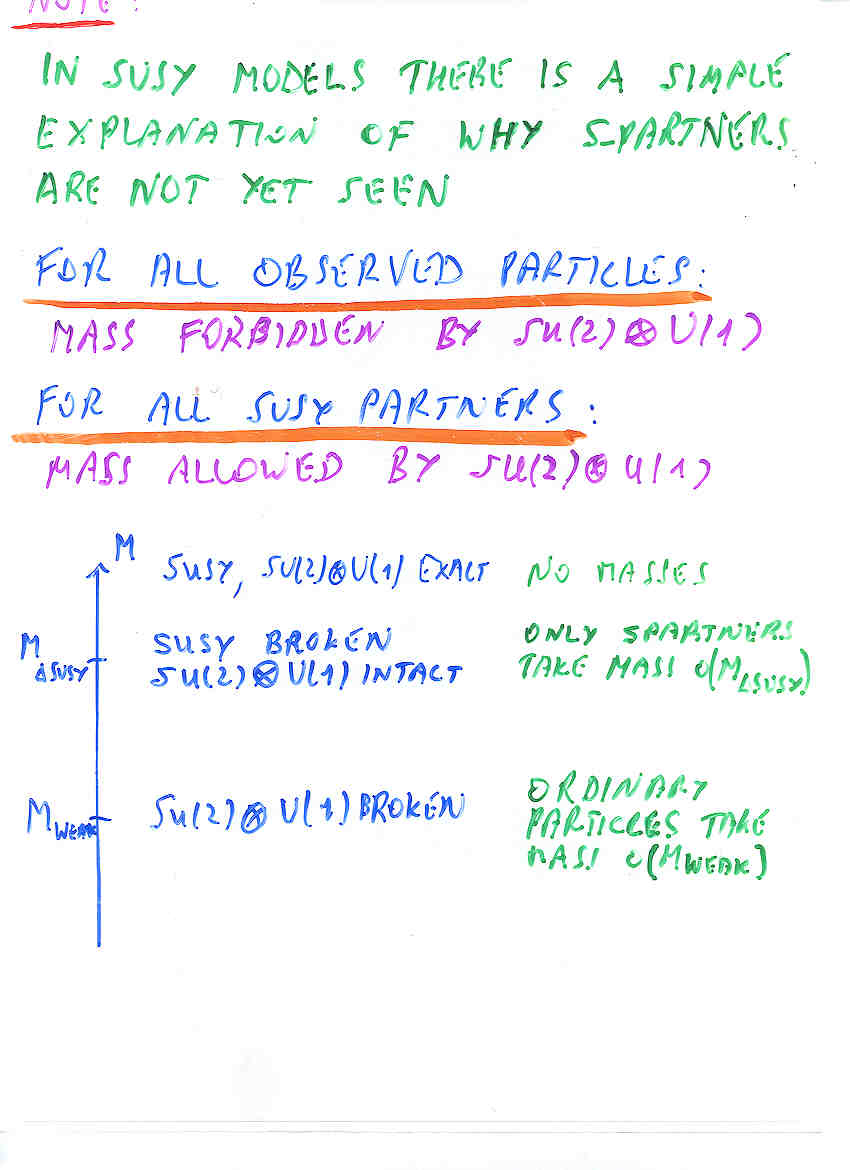 NOTE:
IN SUSY MODELS THERE IS A SIMPLE
EXPLANATION OF WHY S-PARTNERS
ARE NOT YET SEEN
FOR ALL OBSERVED PARTICLES:
MASS FORBIDDEN BY SU(2)⊗U(1)
FOR ALL SUSY PARTNERS:
MASS ALLOWED BY SU(2)⊗U(1)
M
SUSY, SU(2)⊗U(1) EXACT NO MASSES
M ΔSUSY
SUSY BROKEN
SU(2)⊗U(1) INTACT
ONLY SPARTNERS
TAKE MASS O(M ΔSUSY)
M WEAK
SU(2)⊗U(1) BROKEN
ORDINARY
PARTICLES TAKE
MASS O(M WEAK)